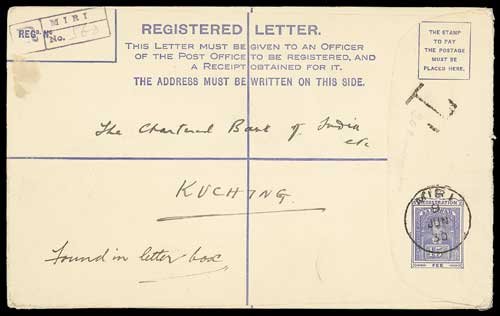 MIRI
R
REGD. No.
No. 163
REGISTERED LETTER.
THIS LETTER MUST BE GIVEN TO AN OFFICER
OF THE POST OFFICE TO BE REGISTERED, AND
A RECEIPT OBTAINED FOR IT.
THE ADDRESS MUST BE WRITTEN ON THIS SIDE.
THE STAMP
TO PAY
THE POSTAGE
MUST BE
PLACED HERE.
T
The Chartered Bank of India
etc
KUCHING.
Found in letter box
MIRI
9
JUN
30
REGISTRATION
15
FEE